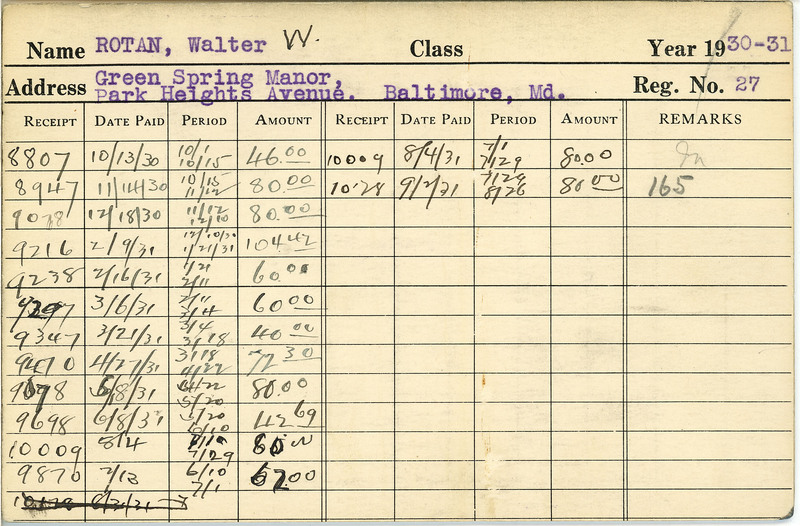 Name ROTAN, Walter W. Class Year 1930-31
Address Green Spring Manor,
Park Heights Avenue. Baltimore, Md. Reg. No. 27
RECEIPT DATE PAID PERIOD AMOUNT RECEIPT DATE PAID PERIOD AMOUNT REMARKS
8807 10/13/30 10/1 10/15 46.00 10009 8/4/31 7/1 7/29 80.00
8947 11/14/30 10/15 11/12 80.00 10128 9/2/31 7/29 8/26 80.00 165
9078 12/18/30 11/12 12/10 80.00
9216 2/9/31 12/10/30 1/21/31 104.42
9238 2/16/31 1/21 2/11 60.00
9297 3/6/31 2/11 3/4 60.00
9347 3/21/31 3/4 3/18 40.00
9410 4/27/31 3/18 4/22 72.30
9678 5/8/31 4/22 5/20 80.00
9698 6/8/31 5/20 6/10 42.69
10009 8/4 7/1 7/29 80.00
9870 7/13 6/10 7/1 67.00